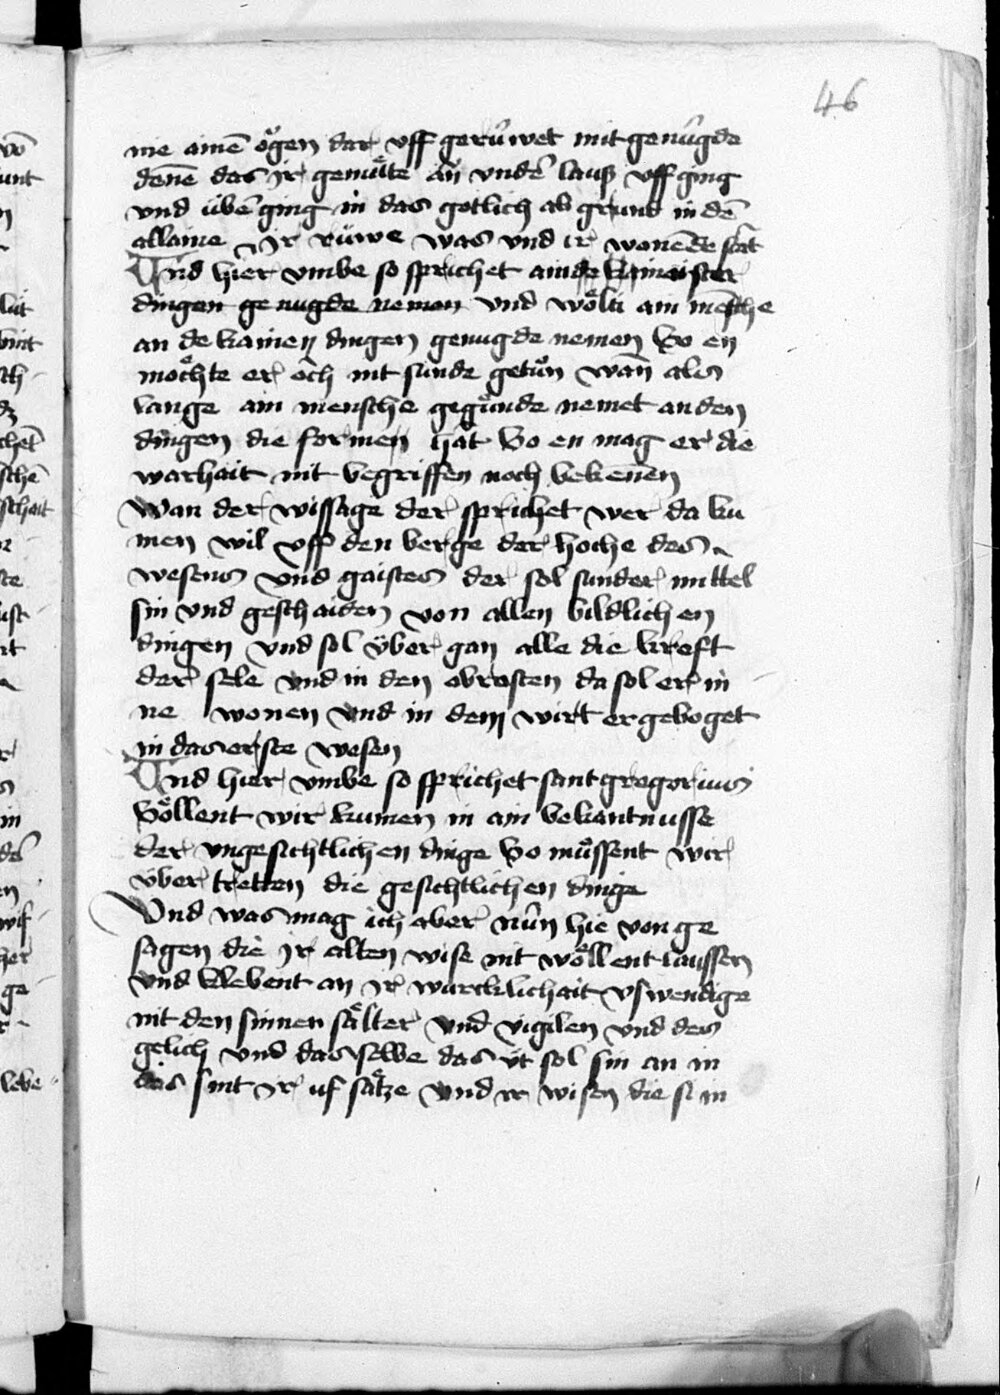 46
nie ainē ögen dar vff gerůwet mit genůgde
denē das ir gemüte an vndē lausz vff ging
vnd übē ging in das gotlich ab grund in dē
allaine ir rüwe was vnd ir wonēde stat
Vnd hier vmbe so sprichet ain maister
dingen ge nugde nemen vnd wölti ain mēsche
an de kainen dingen genugde nemen so en
möchte er och nit sunde getůn wān als
lange ain mensche gegünde nemet an den
dingen die formen hāt so en mag er die
warhait nit begriffen noch bekenēn
Wan der wissage der sprichet wer da ku
men wil vff den berge der hoche des
wesens vnd gaistes der sol sunder mittel
sin vnd geschaiden von allen bildlichen
dingen vnd sol über gan alle die kreft
der sele vnd in den obresten da sol er in
ne wonen vnd in dem wirt er geboget
in das erste wesen
Vnd hier vmbe so sprichet sant gregorius
Wöllent wir kumen in ain bekantnusse
der vngesichtlichen dinge so müssent wir
über tretten die gesichtlichen dinge
Vnd was mag ich aber nůn hie von ge
sagen die ir alten wise nit wöllent laussen
vnd klebent an ir wurcklichait vswendige
mit den sinnen sälter vnd vigilen vnd des
gelich vnd das selbe das üt sol sin an in
das sint ir uf sätze vnd ir wisen die si in